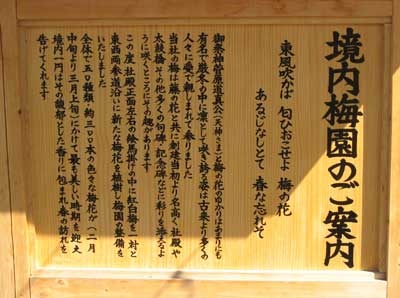 境内梅園のご案内
東風吹かば 匂ひおこせよ 梅の花
あるじなしとて 春な忘れそ
御祭神菅原道真公(天神さま)と梅の花のゆかりはあまりにも
有名で厳冬の中に凛として咲き誇る姿は古来より多くの
人々に愛で親しまれて参りました
当社の梅は藤の花と共に創建当初より名高く社殿や
太鼓橋その他多くの句碑・記念碑などに彩りを添えるよ
うに咲くところにその趣があります
この度、社殿正面左右の絵馬掛けの中に紅白梅を一対と
東西両参道沿いに新たな梅花を植樹し梅園の整備を
いたしました
全体で五〇種類・約三〇〇本の色々な梅花が(二月
中旬より三月上旬)にかけて最も美しい時期を迎え
境内一円はその馥郁とした香りに包まれ春の訪れを
告げてくれます